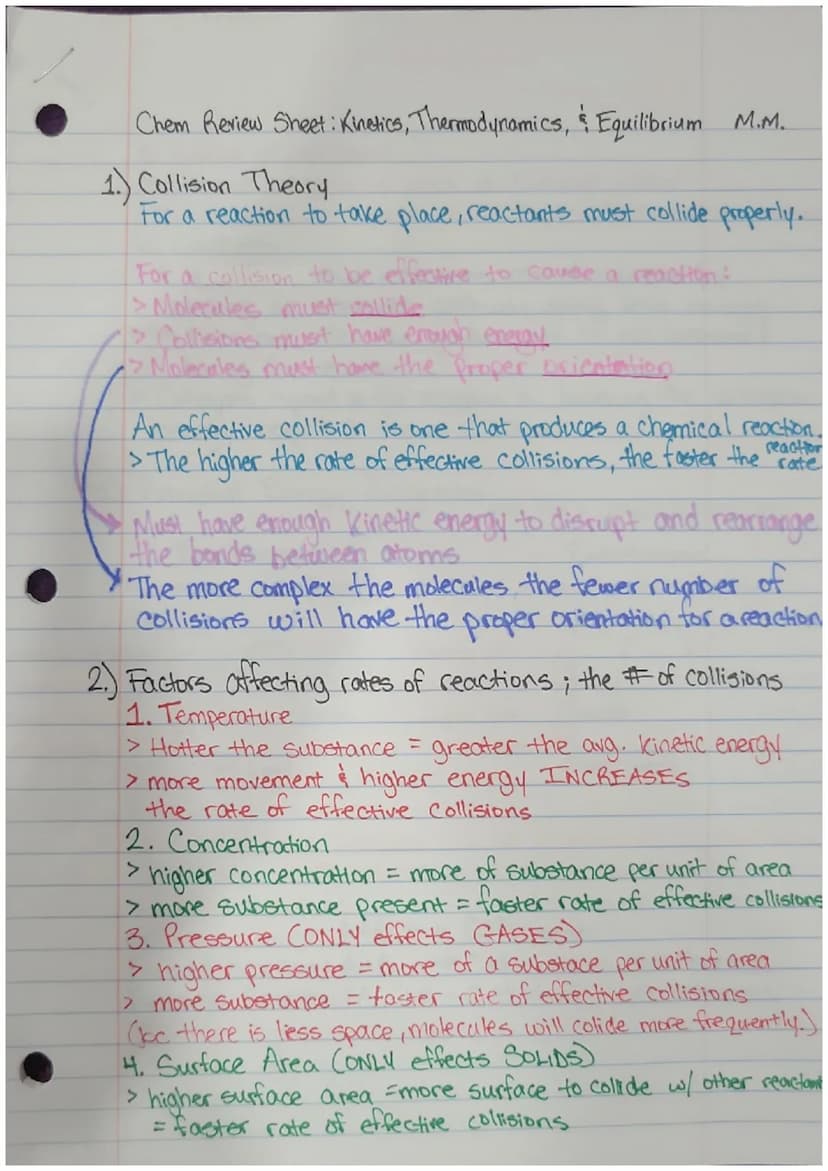 Chem Review Sheet: Kinetics, Thermodynamics, & Equilibrium M.M.
1.) Collision Theory
For a reaction to take place, reactants must collide properly.
For a collision to be effective to cause a reaction:
> Molecules must collide
> Collisions must have enough energy
> Molecules must have the proper orientation
An effective collision is one that produces a chemical reaction.
> The higher the rate of effective collisions, the faster the reaction rate
Must have enough kinetic energy to disrupt and rearrange
the bonds between atoms
The more complex the molecules the fewer number of
collisions will have the proper orientation for a reaction
2.) Factors affecting rates of reactions; the # of collisions
1. Temperature
> Hotter the substance = greater the avg. kinetic energy
> more movement & higher energy INCREASES
the rate of effective collisions
2. Concentration
> higher concentration = more of substance per unit of area
> more substance present = faster rate of effective collisions
3. Pressure (ONLY effects GASES)
> higher pressure = more of a substace per unit of area
> more substance = faster rate of effective collisions
(bc there is less space, molecules will colide more frequently.)
4. Surface Area (ONLY effects SOLIDS)
> higher surface area = more surface to colide w/ other reactant
= faster rate of effective collisions